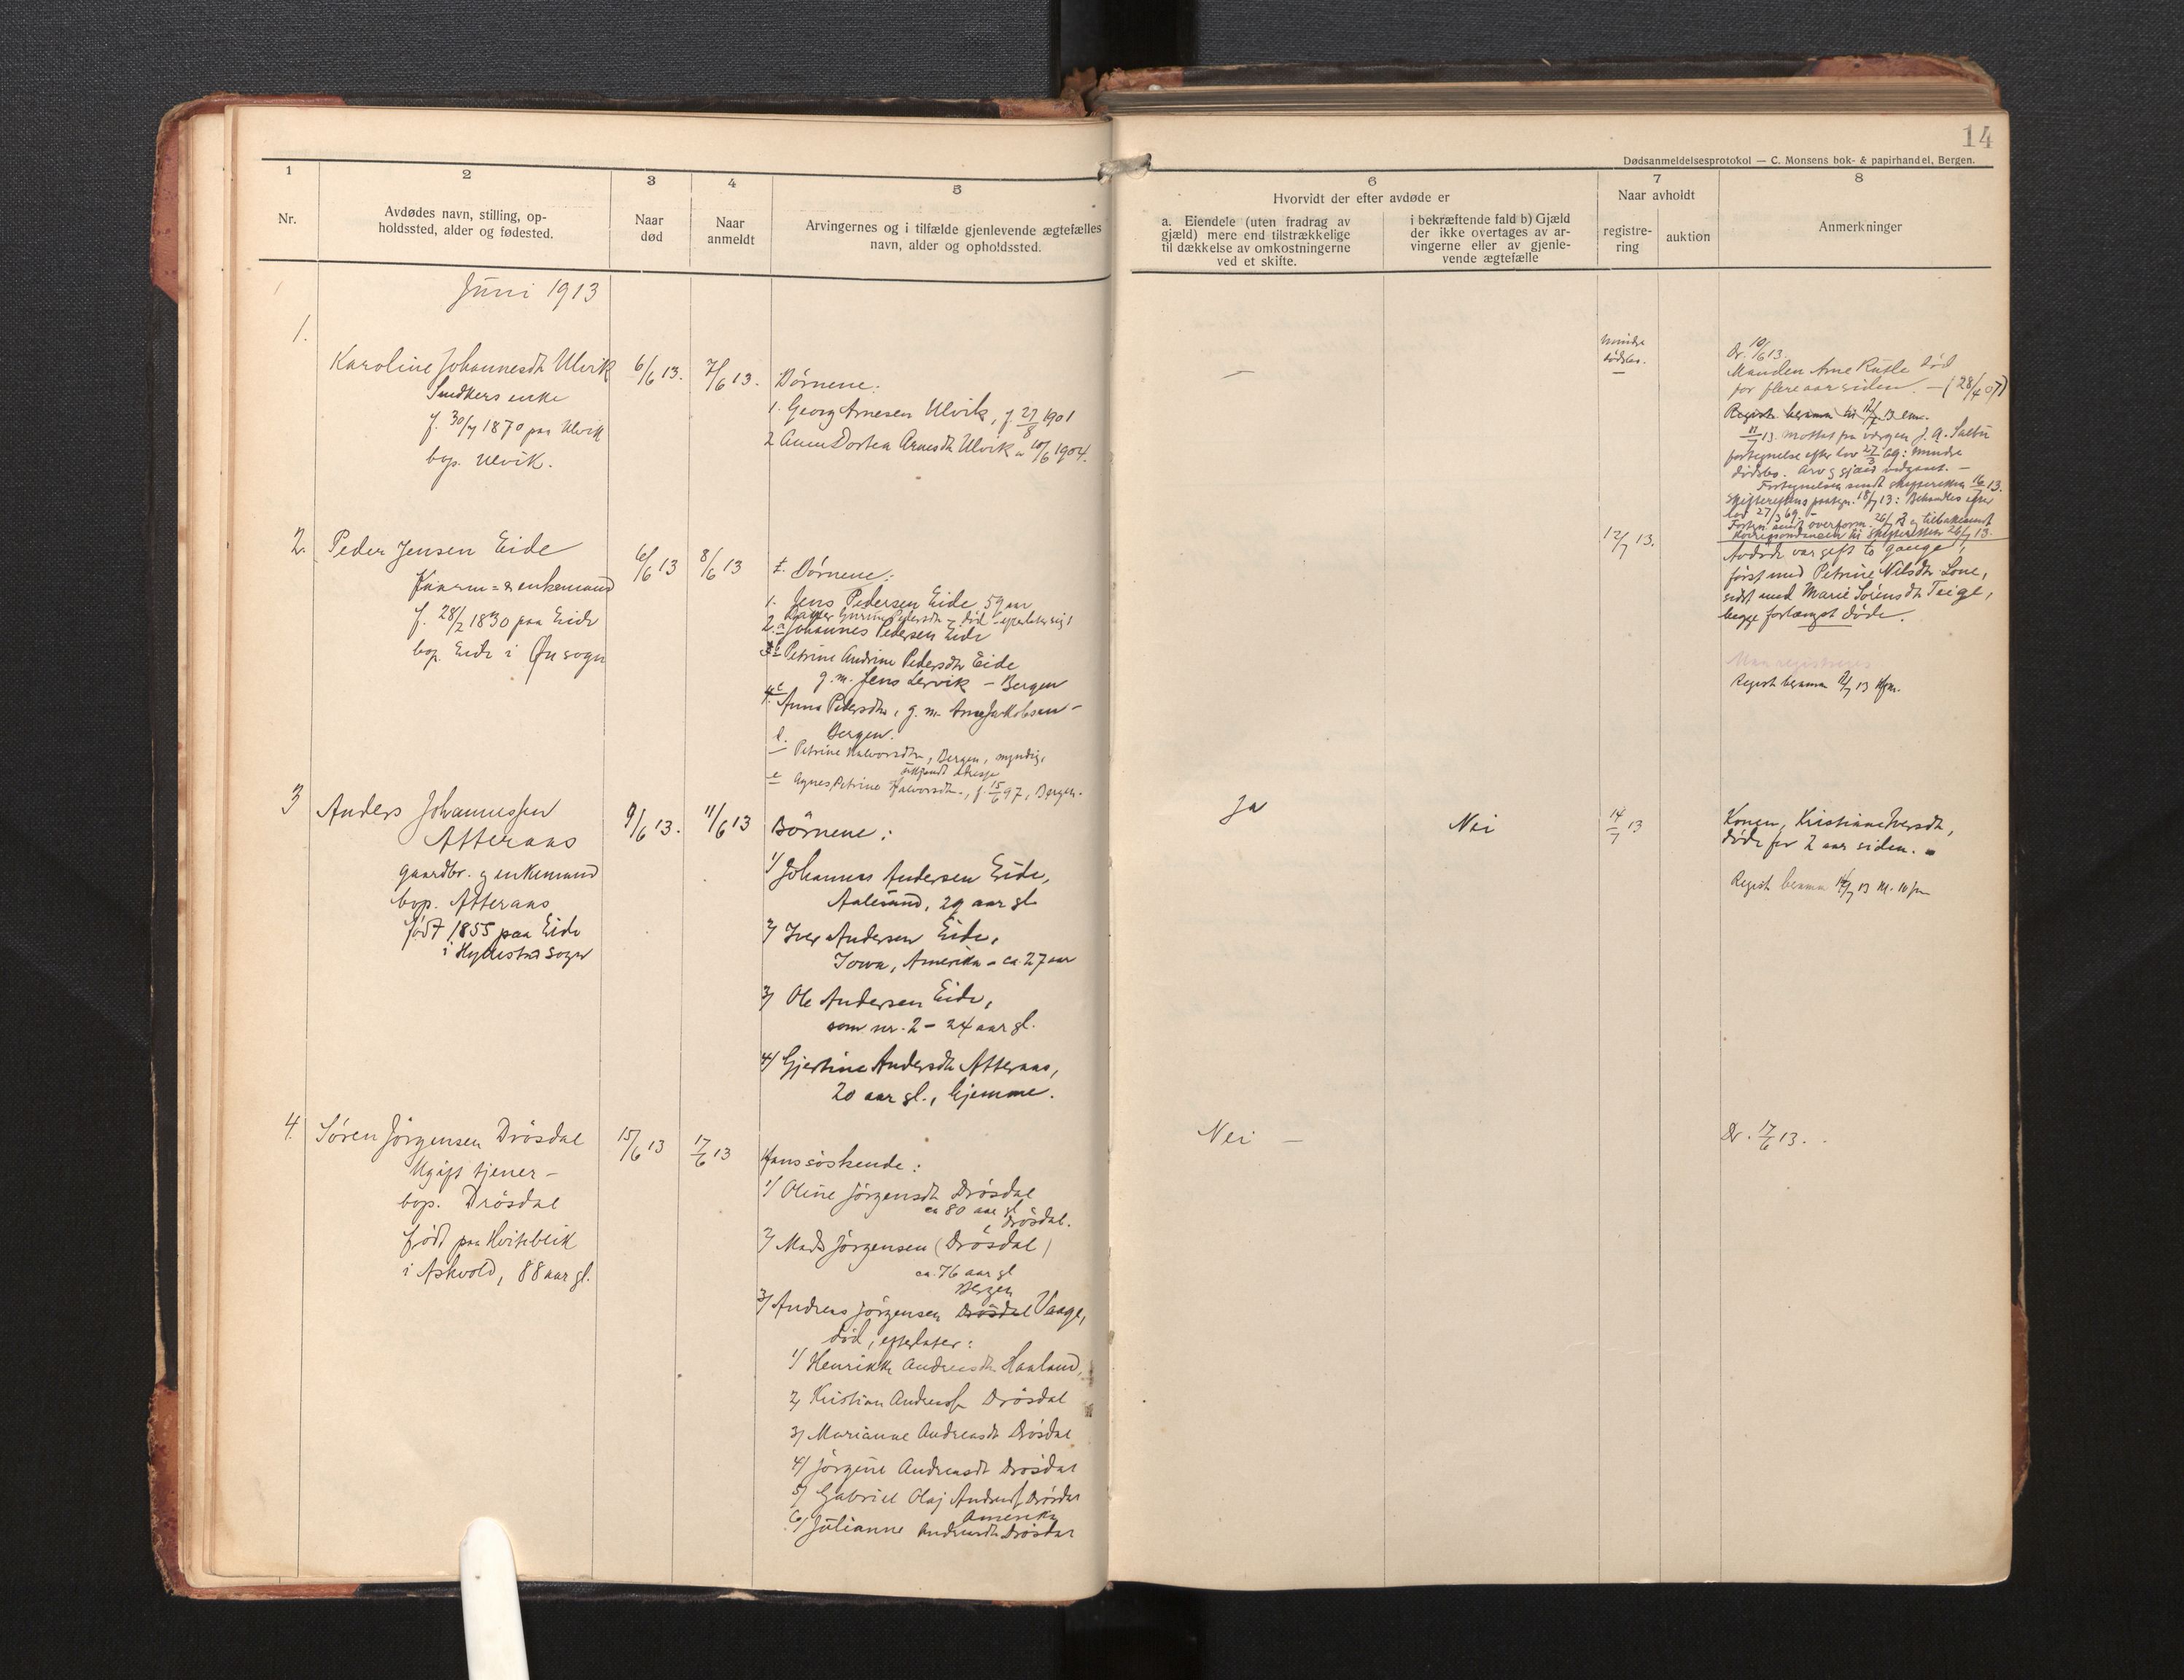 14
Dødsanmeldelsesprotokol — C. Monsens bok- & papirhandel, Bergen.
1
2
3
4
5
6
7
8
Nr.
Avdødes navn, stilling, op-
holdssted, alder og fødested.
Naar
død
Naar
anmeldt
Arvingernes og i tilfælde gjenlevende ægtefælles
navn, alder og opholdssted.
Hvorvidt der efter avdøde er
a. Eiendele (uten fradrag av
gjæld) mere end tilstrækkelige
til dækkelse av omkostningerne
ved et skifte.
i bekræftende fald b) Gjæld
der ikke overtages av ar-
vingerne eller av gjenle-
vende ægtefælle
Naar avholdt
registre-
ring
auktion
Anmerkninger
Juni 1913
1.
Karoline Johannesdt Ulvik
enke
f. 30/7 1870 paa Ulvik
bop. Ulvik.
6/6 13.
7/6 13.
Børnene:
1. Georg Arnesen Ulvik, f. 27/8 1901
2 Anne Dortea Arnesdt Ulvik " 10/6 1904.
—
mindre
dødsbo.
Dr. 10/6 13.
Manden Arne Rutle død
for flere aar siden. — (28/4 07)
Registr. beramm. til 12/7 13 em.
11/7 13. Mottat fra vergen J. A.
fortegnelse efter lov 27/3 69: mindre
dødsbo. Arv g gjæld vedgaaet. —
Fortegnelsen sendt skifteretten 16/7 13.
Skifterettens paategn. 18/7 13: Behandles efter
lov 27/3 69. —
Fortegn. sendt overform. 26/7 13 og tilbakesendt
til skifteretten 26/7 13.
2.
Peder Jensen Eide
Kaarm= & enkemand
f. 28/2 1830 paa Eide
bop. Eide i Øn sogn
6/6 13
8/6 13
Børnene:
1. Jens Pedersen Eide 59 aar
2. Datter Gurine Pedersdtr – død – efterlater sig:
a Johannes Pedersen Eide
b Petrine Andrine Pedersdtr Eide
g.m. Jens Lervik – Bergen
c Anna Pedersdtr, g.m. Arne Jakobsen –
Bergen.
d. Petrine Halvorsdtr, Bergen, myndig,
ukjendt adresse
e Agnes Petrine Halvorsdtr., f. 15/6 97, Bergen.
12/7 13.
Avdøde var gift to gange,
først med Petrine Nilsdtr Lone,
sidst med Marie Sørensdtr Taige,
begge forlængst døde.
Maa registreres
Regist beramm 12/7 13 Kfm.
3
Anders Johannessen
Atteraas
gaardbr. g enkemand
bop. Atteraas
født 1855 paa Eide
i Hyllestad sogn
9/6 13.
11/6 13
Børnene:
1/ Johannes Andersen Eide,
Aalesund, 29 aar gl
2/ Iver Andersen Eide,
Iowa, Amerika – ca. 27 aar
3/ Ole Andersen Eide,
som nr. 2 – 24 aar gl.
4/ Gjertine Andersdt Atteraas,
20 aar gl., hjemme.
Ja
Nei
14/7 13
Konen, Kristiane Iversdt,
døde for 2 aar siden. –
Regist beramm 14/7 13 kl. 10 fm
4.
Søren Jörgensen Drösdal
Ugift tjener –
bop. Drösdal
født paa Hviteblik
i Askvold, 88 aar gl.
15/6 13
17/6 13
Hans söskende:
1/ Oline Jörgensdt Drösdal
ca 80 aar gl
Drösdal.
2/ Mads Jörgensen (Drösdal)
ca. 76 aar gl
Bergen
3/ Andreas Jörgensen Drösdal Vaage,
död, efterlater:
1/ Henrikke Andreasdtr Haaland,
2/ Kristian Andreass Drösdal
3/ Marianne Andreasdt Drösdal
4/ Jörgine Andreasdt Drösdal
5/ Gabriel Olaj Andreass Drösdal
Amerika
6/ Julianne Andreasdt Drösdal
Nei –
Dr. 17/6 13.